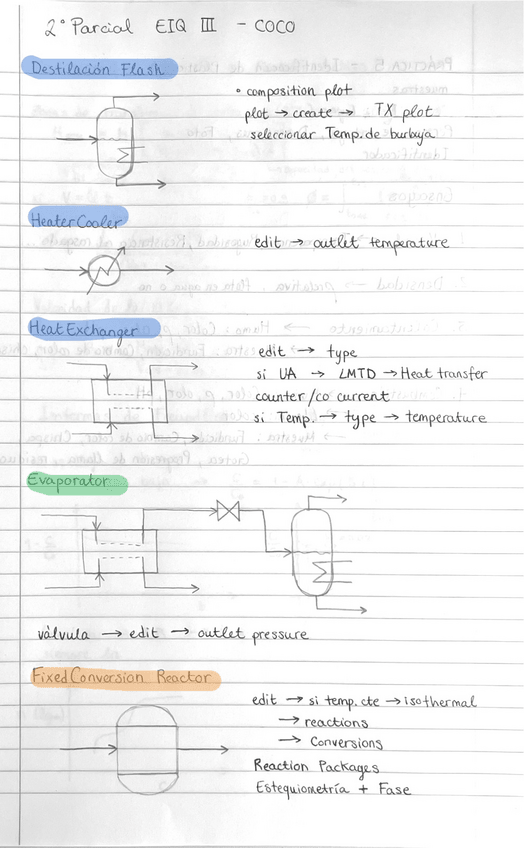 2° Parcial EIQ III - COCO
Destilación Flash
• composition plot
plot → create → TX plot
seleccionar Temp. de burbuja
Heater Cooler
edit → outlet temperature
Heat Exchanger
edit → type
si UA → LMTD → Heat transfer
counter/co current
si Temp. → type → temperature
Evaporator
válvula → edit → outlet pressure
Fixed Conversion Reactor
edit → si temp. cte → isothermal
→ reactions
→ Conversions
Reaction Packages
Estequiometría + Fase